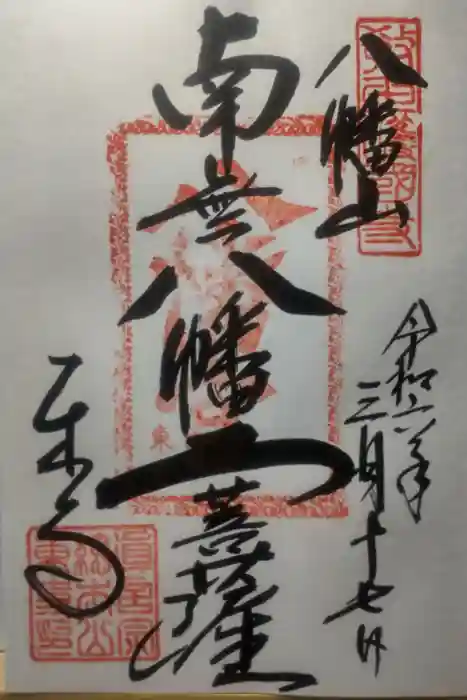 八幡山
令和六年
三月十七日
南無八幡大菩薩
東寺
東